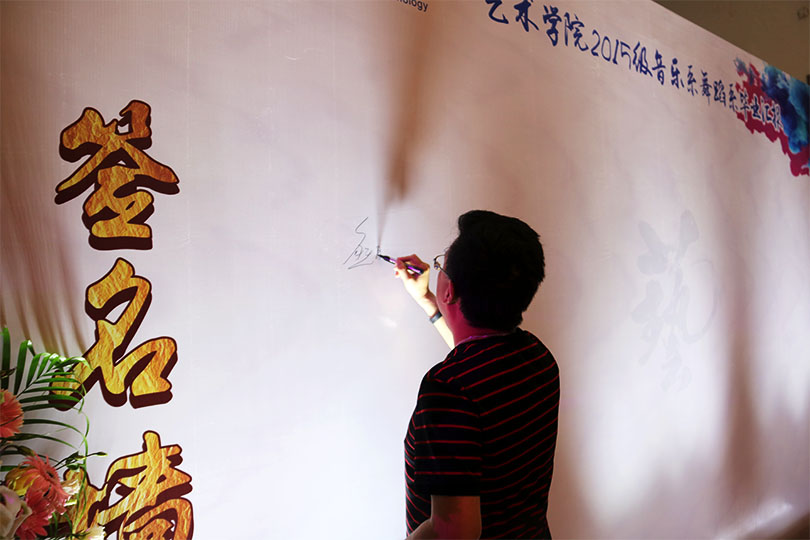 nology
艺术学院2015级音乐系舞蹈系毕业汇报
签名墙
藝